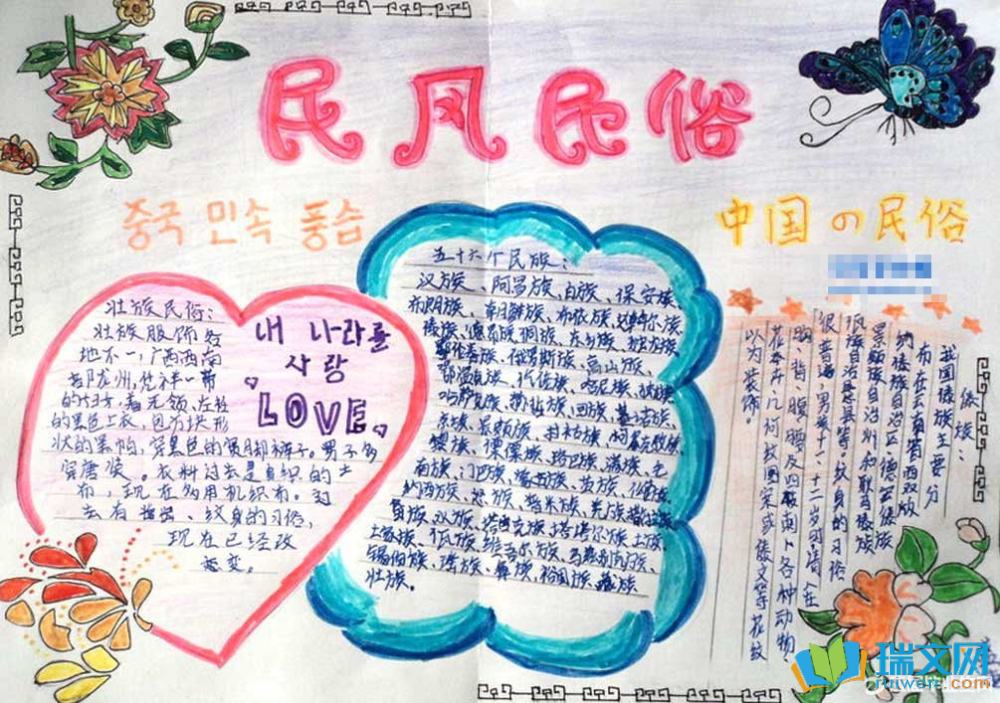 民风民俗
중국 민속 풍습
中国の民俗
壮族民俗:
壮族服饰各
地不一,广西西南
部龙州,凭祥一带
的妇女,着无领、左衽
的黑色上衣,包方块形
状的黑帕,穿黑色的宽脚裤子。男子多
穿唐装。衣料过去是自织的土
布,现在多用机织布。过
去有 纹身的习俗,
现在已经改
变。
내 나라를
사랑
LOVE
五十六个民族:
汉族、阿昌族、白族、保安族、
布朗族、朝鲜族、布依族、达斡尔族
傣族、德昂族、侗族、东乡族、独龙族
鄂伦春族、俄罗斯族、高山族、
鄂温克族、仡佬族、哈尼族、
哈萨克族、 回族、基诺族、
京族、景颇族、 柯尔克孜族、
黎族、傈僳族、珞巴族、满族、毛
南族、门巴族、 苗族、仫佬族
纳西族、怒族、普米族、羌族、撒拉族
畲族、水族、塔吉克族、塔塔尔族、土族、
土家族、佤族、维吾尔族、乌孜别克族、
锡伯族、瑶族、彝族、裕固族、藏族、
壮族。
傣族:
我国傣族主要分
布在云南省西双版
纳傣族自治区、德宏傣族
景颇族自治州和耿马傣族
佤族自治县等。纹身的习俗
很普遍,男孩十一、十二岁即请人在
胸、背、腹、腰及四肢刺上各种动物、
花卉、几何纹图案或傣文等花纹
以为装饰。
瑞文网
ruiwen.com